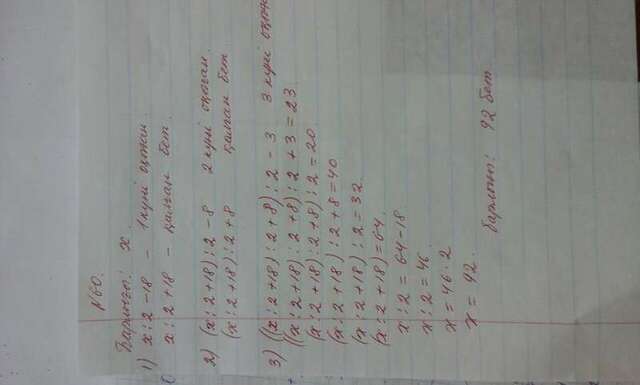 №60.
Барлығы: x
1) x : 2 - 18 - 1 күні оқыған
x : 2 + 18 - қалған бет.
2) (x : 2 + 18) : 2 - 8 2 күні оқыған
(x : 2 + 18) : 2 + 8 қалған бет
3) ((x : 2 + 18) : 2 + 8) : 2 - 3 3 күні
((x : 2 + 18) : 2 + 8) : 2 + 3 = 23.
(x : 2 + 18) : 2 + 8) : 2 = 20
(x : 2 + 18) : 2 + 8 = 40
(x : 2 + 18) : 2 = 32.
(x : 2 + 18) = 64
x : 2 = 64 - 18.
x : 2 = 46
x = 46 · 2
x = 92.
барлығы: 92 бет.